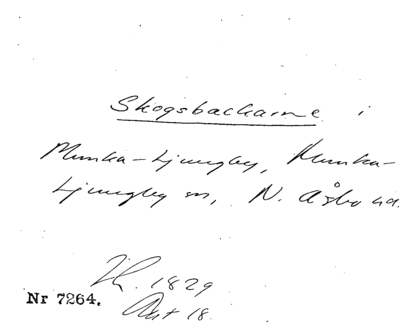 Skogsbackarne i
Munka-Ljungby, Munka-
Ljungby sn, N. Åsbo hd.
1829
Nr 7264. Akt 18.